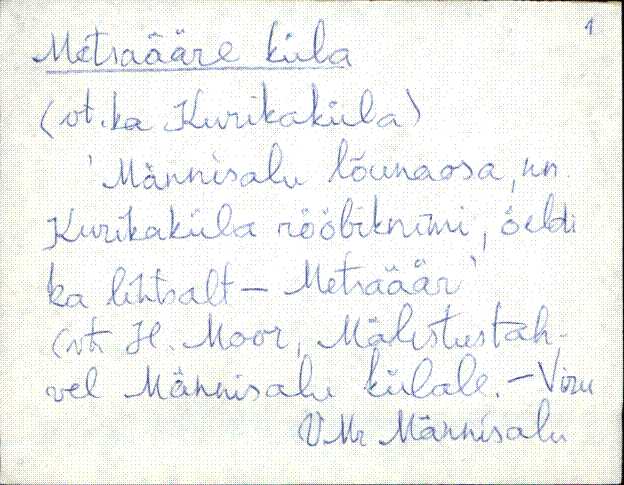 1
Metsaääre küla
(vt. ka Kurikaküla)
'Männisalu lõunaosa, nn.
Kurikaküla rööbiknimi, öeldi
ka lihtsalt – Metsaäär'
(vt. H. Moor, Mälestustah-
vel Männisalu külale. – Viru
VMr Männisalu